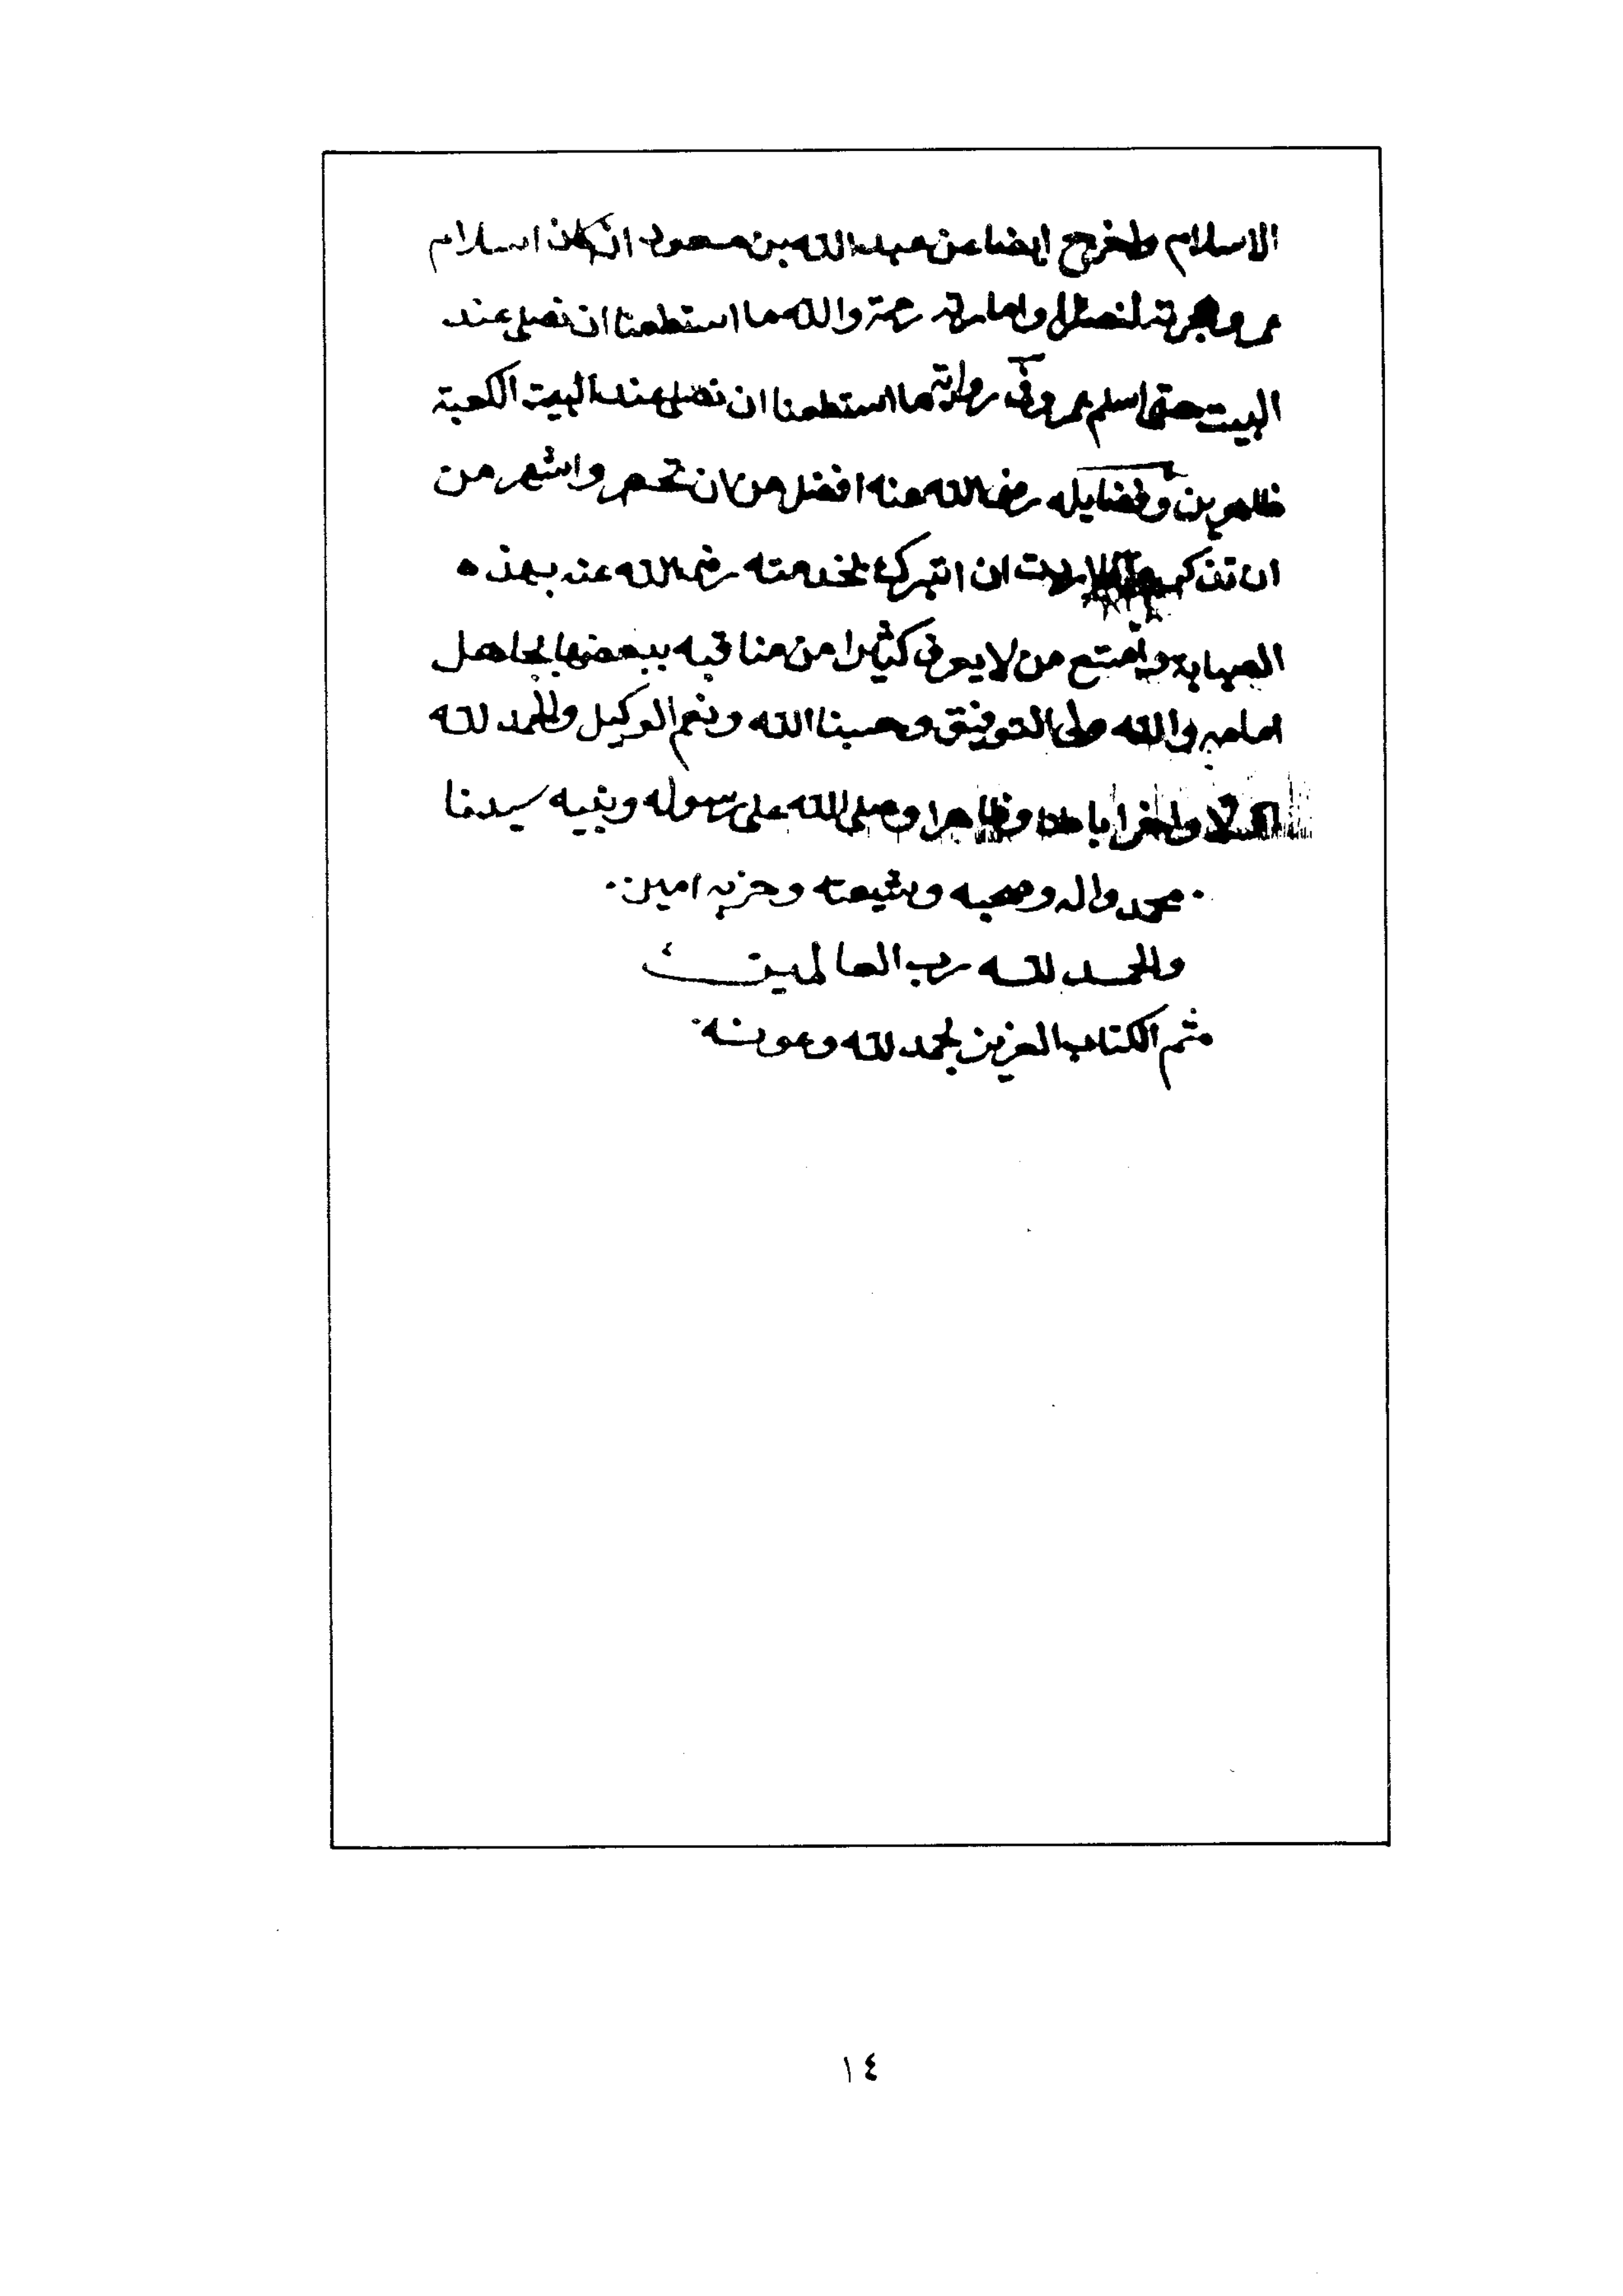 الاسلام واخرج ايضا عن عبد الله بن مسعود ان كان اسلام
عمر وهجرته لنصرا وامارته رحمة والله ما استطعنا ان نصلى عند
البيت حتى اسلم عمر وفى رواية ما استطعنا ان نصلى عند البيت الكعبة
ظاهرين وفضايله رضى الله عنه افضل من ان تحصر واشهر من
ان تذكر اردت ان اتبرك بخدمته رضى الله عنه بهذه
الصبابة وامتع من لا يعرف كثيرا من مناقبه ببعضها
والله ولى التوفيق وحسبنا الله ونعم الوكيل والحمد لله
اولا واخرا باطنا وظاهرا وصلى الله على رسوله ونبيه سيدنا
محمد واله وصحبه وشيعته وحزبه امين.
والحمد لله رب العالمين
الكتاب العزيز بحمد لله وعونه
١٤